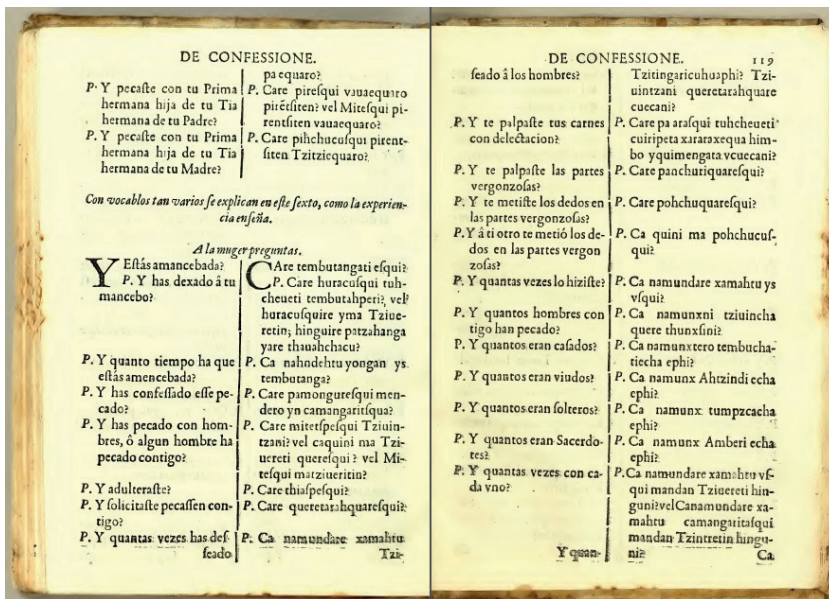 DE CONFESSIONE.
P. Y pecaſte con tu Prima
hermana hija de tu Tia
hermana de tu Padre?
P. Y pecaſte con tu Prima
hermana hija de tu Tia
hermana de tu Madre?
pa equaro?
P. Care pireſqui vauaequaro
pirẽtſiten? vel Miteſqui pi-
rentſiten vauaequaro?
P. Care pihchucuſqui pirent-
ſiten Tzitziequaro?
Con vocablos tan varios ſe explican en eſte ſexto, como la experien-
cia enſeña.
A la muger preguntas.
Y Eſtás amancebada?
P. Y has dexado â tu
mancebo?
P. Y quanto tiempo ha que
eſtás amencebada?
P. Y has confeſſado eſſe pe-
cado?
P. Y has pecado con hom-
bres, ô algun hombre ha
pecado contigo?
P. Y adulteraſte?
P. Y ſolicitaſte pecaſſen con-
tigo?
P. Y quantas vezes has deſ-
ſeado
CAre tembutangati eſqui?
P. Care huracuſqui tuh-
cheueti tembutahperi, vel
huracuſquire yma Tziue-
retin; hinguire patzahanga
yare thauahchacu?
P. Ca nahndehtu yongan ys
tembutanga?
P. Care pamongureſqui men-
dero yn camangaritſqua?
P. Care mitetſpeſqui Tziuin-
tzani? vel caquini ma Tzi-
uereti quereſqui? vel Mi-
teſqui matziueritin?
P. Care thiaſpeſqui?
P. Care queretarahquareſqui?
P. Ca namundare xamahtu
Tzi-
DE CONFESSIONE.
119
ſeado â los hombres?
P. Y te palpaſte tus carnes
con delectacion?
P. Y te palpaſte las partes
vergonzoſas?
P. Y te metiſte los dedos en
las partes vergonzoſas?
P. Y â ti otro te metió los de-
dos en las partes vergon
zoſas?
P. Y quantas vezes lo hiziſte?
P. Y quantos hombres con
tigo han pecado?
P. Y quantos eran caſados?
P. Y quantos eran viudos?
P. Y quantos eran ſolteros?
P. Y quantos eran Sacerdo-
tes?
P. Y quantas vezes con ca-
da vno?
Y quan-
Tzitingaricuhuaphi? Tzi-
uintzani queretarahquare
cuecani?
P. Care pa araſqui tuhcheueti
cuiripeta xararaxequa him-
bo yquimengata vcuecani?
P. Care panchuriquareſqui?
P. Care pohchuquareſqui?
P. Ca quini ma pohchucuſ-
qui?
P. Ca namundare xamahtu ys
vſqui?
P. Ca namunxni tziuincha
quere thunxſini?
P. Ca namunxtero tembucha-
tiecha ephi?
P. Ca namunx Ahtzindi echa
ephi?
P. Ca namunx tumpzcacha
ephi?
P. Ca namunx Amberi echa
ephi?
P. Ca namundare xamahtu vſ-
qui mandan Tziuereti hin-
guni? vel Canamundare xa-
mahtu camangaritaſqui
mandan Tzintretin hingu-
ni?
Ca